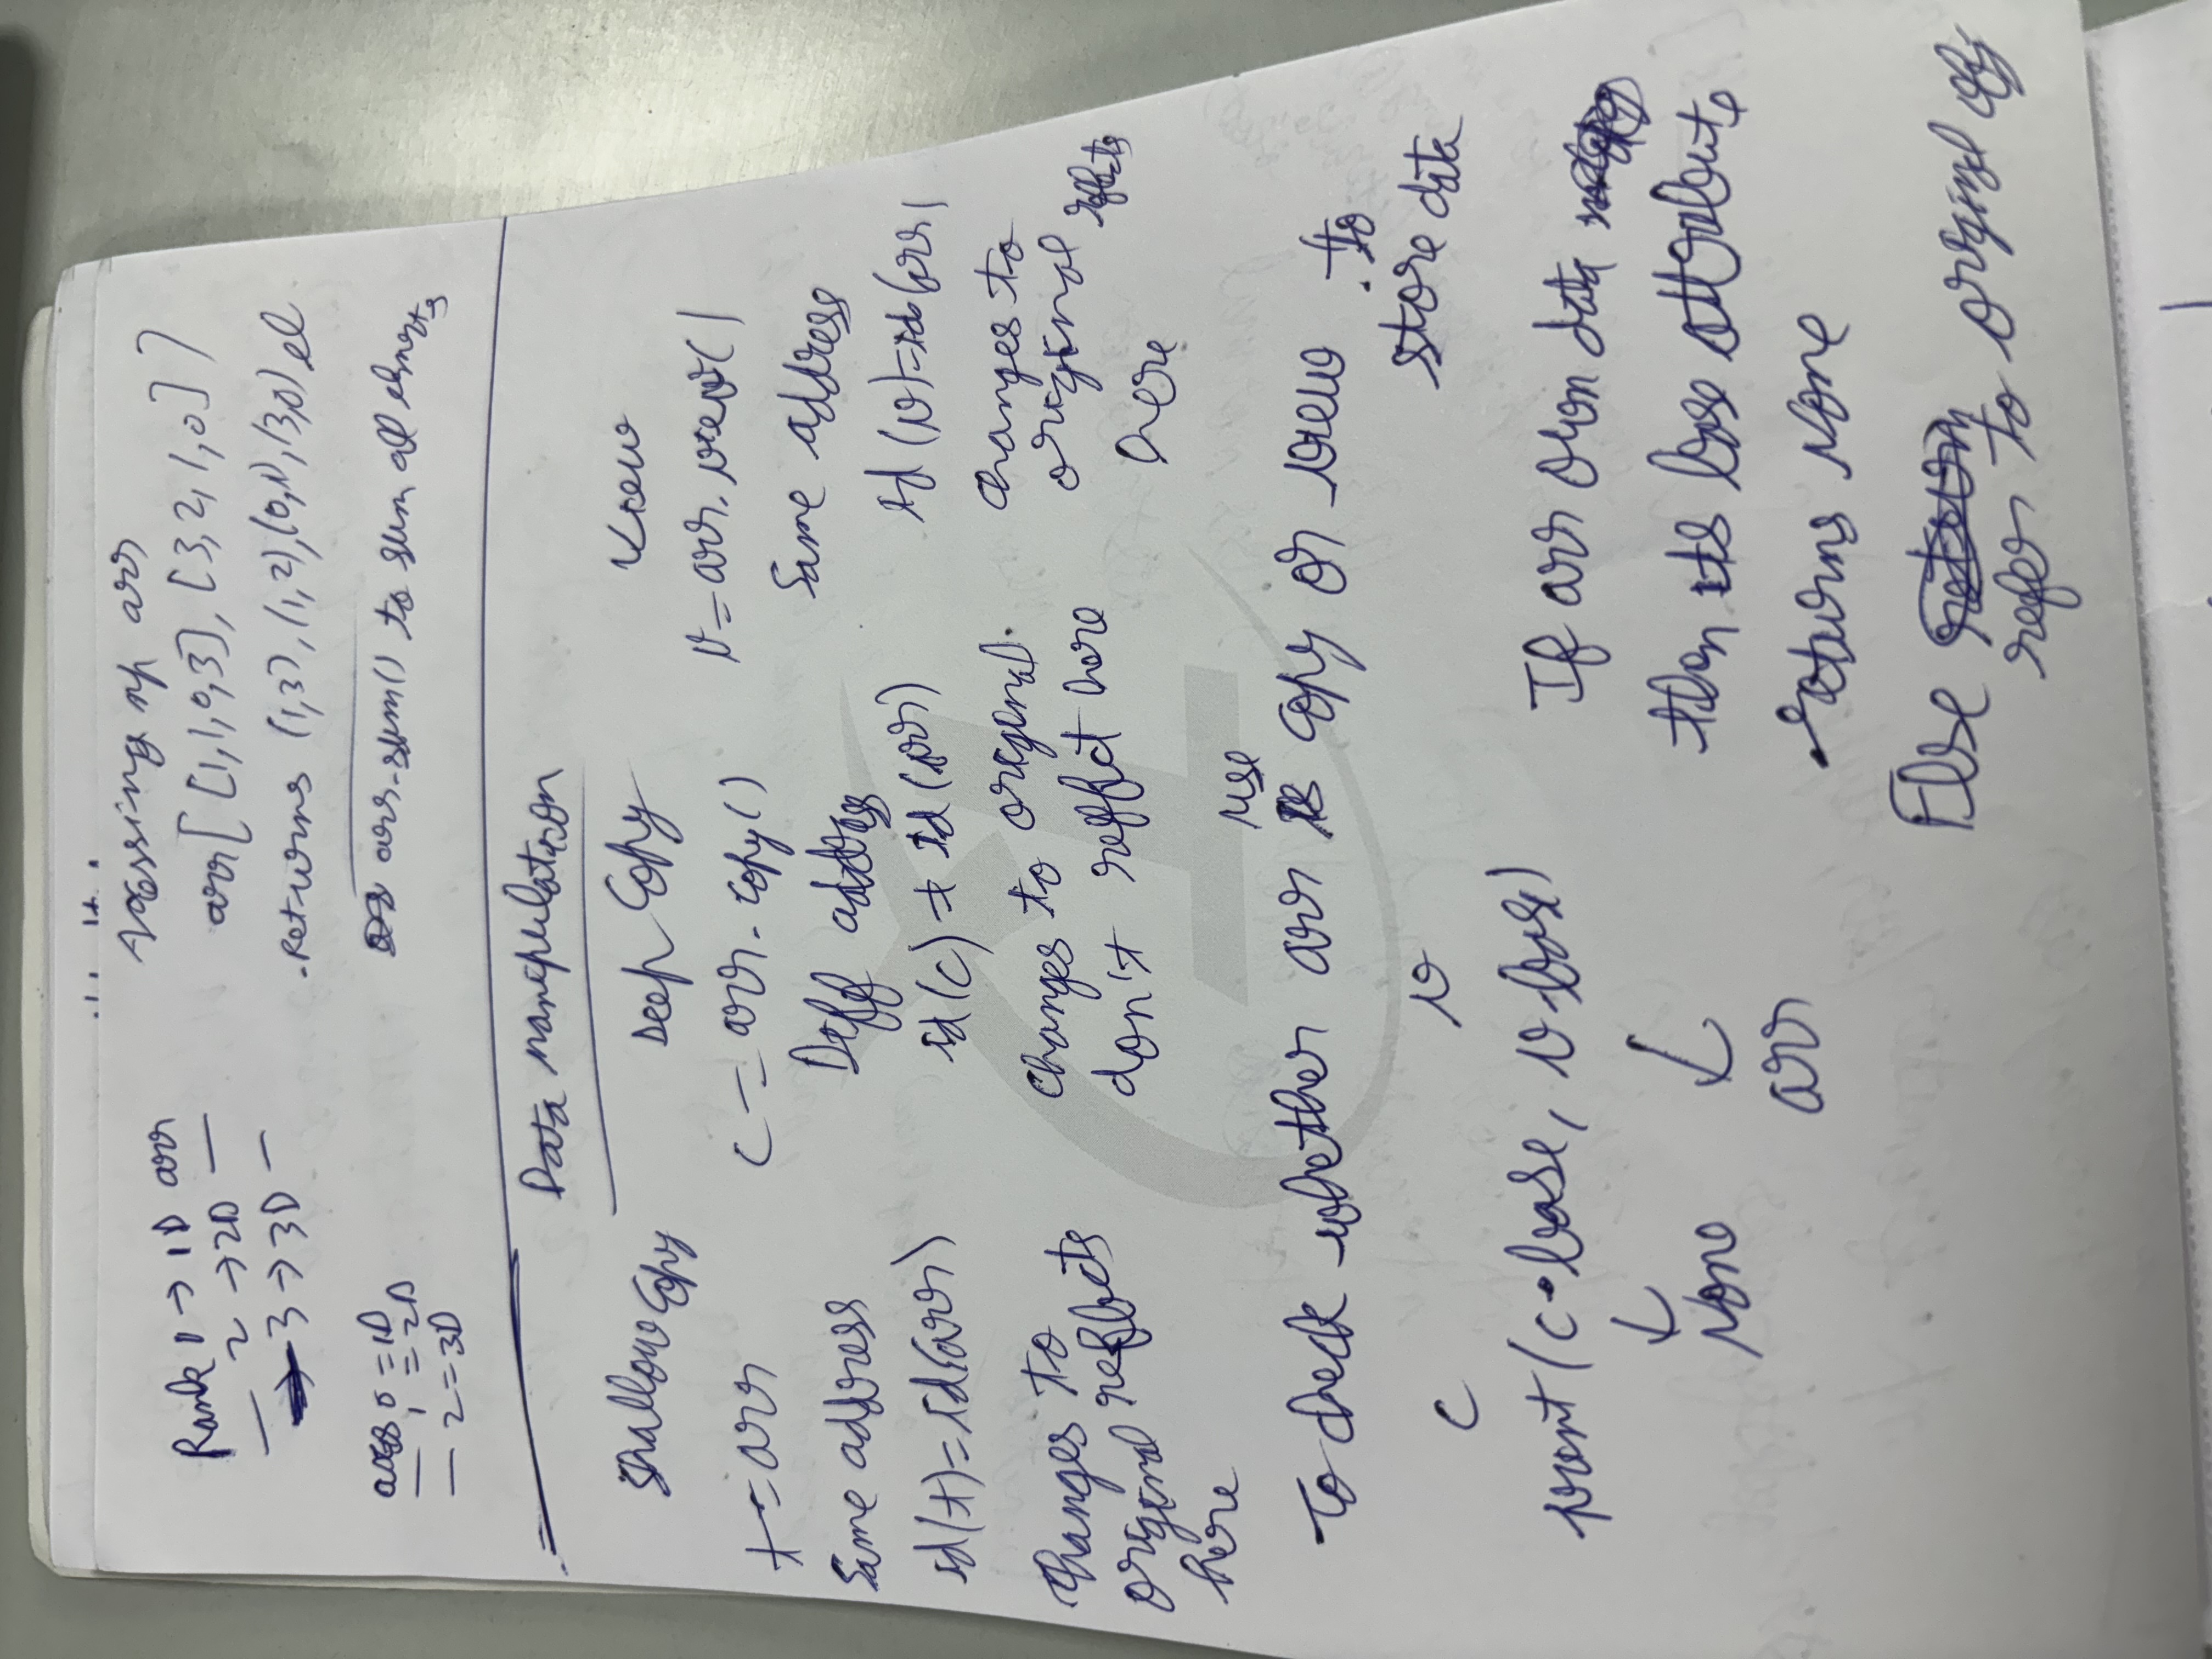 Rank 1 → 1D arr
— 2 → 2D —
3 → 3D —
axes 0 = 1D
— 1 = 2D
— 2 = 3D
Acessing np arr
arr[[1,1,0,3], [3,2,1,0]]
Returns (1,3), (1,2), (0,1), (3,0) el
arr.sum() to sum all elments
Data manipulation
Shallow Copy
t = arr
Same address
id(t) = id(arr)
Changes to
original reflects
here
Deep Copy
c = arr.copy()
Diff address
id(c) ≠ id(arr)
Changes to original
don't reflect here
View
v = arr.view()
Same address
id(v) = id(arr)
Changes to
original reflects
here
use
To check whether arr is copy or view to
store data
c v
print(c.base, v.base)
↓ ↓
None
arr
If arr own data
then its base attribute
returns None
Else
refer to original obj